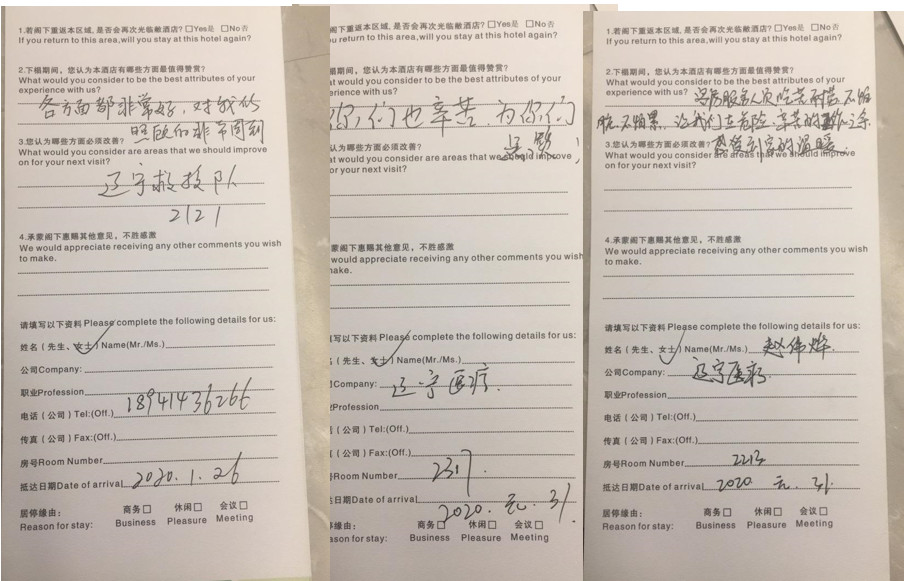 1.若阁下重返本区域,是否会再次光临敝酒店? □Yes是 □No否
If you return to this area,will you stay at this hotel again?
2.下榻期间，您认为本酒店有哪些方面最值得赞赏?
What would you consider to be the best attributes of your
experience with us?
各方面都非常好，对我们
照顾的非常周到
3.您认为哪些方面必须改善?
What would you consider are areas that we should improve
on for your next visit?
辽宁救援队
2121
4.承蒙阁下惠赐其他意见，不胜感激
We would appreciate receiving any other comments you wish
to make.
请填写以下资料 Please complete the following details for us:
姓名（先生、女士）Name(Mr./Ms.)
公司Company:
职业Profession
电话（公司）Tel:(Off.) 18941436266
传真（公司）Fax:(Off.)
房号Room Number
抵达日期Date of arrival 2020.1.26
居停缘由: 商务□ 休闲□ 会议□
Reason for stay: Business Pleasure Meeting
阁下重返本区域,是否会再次光临敝酒店? □Yes是 □No否
u return to this area,will you stay at this hotel again?
下榻期间，您认为本酒店有哪些方面最值得赞赏?
at would you consider to be the best attributes of your
erience with us?
你们也辛苦,为你们
认为哪些方面必须改善?
at would you consider are areas that we should improve
or your next visit?
蒙阁下惠赐其他意见，不胜感激
would appreciate receiving any other comments you wish
make.
写以下资料 Please complete the following details for us:
（先生、女士）Name(Mr./Ms.)
Company: 辽宁医疗.
Profession
（公司）Tel:(Off.)
（公司）Fax:(Off.)
Room Number 2317.
日期Date of arrival 2020.元.31.
缘由: 商务□ 休闲□ 会议□
son for stay: Business Pleasure Meeting
1.若阁下重返本区域,是否会再次光临敝酒店? □Yes是 □No否
If you return to this area,will you stay at this hotel again?
2.下榻期间，您认为本酒店有哪些方面最值得赞赏?
What would you consider to be the best attributes of your
experience with us? 客房服务人员吃苦耐劳.不怕
脏.不怕累，让我们在危险、辛苦的工作之余.
3.您认为哪些方面必须改善? 感受到家的温暖.
What would you consider are areas that we should improve
on for your next visit?
4.承蒙阁下惠赐其他意见，不胜感激
We would appreciate receiving any other comments you wish
to make.
请填写以下资料 Please complete the following details for us:
姓名（先生、女士）Name(Mr./Ms.) 赵伟烨.
公司Company: 辽宁医疗.
职业Profession
电话（公司）Tel:(Off.)
传真（公司）Fax:(Off.)
房号Room Number 2213
抵达日期Date of arrival 2020 元.31.
居停缘由: 商务□ 休闲□ 会议□
Reason for stay: Business Pleasure Meeting